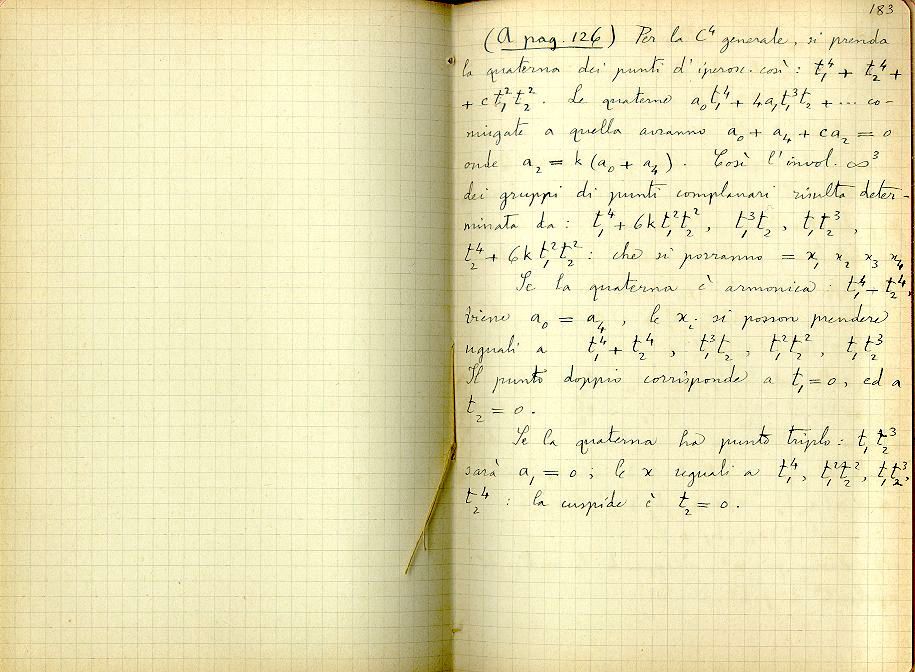 183
(A pag. 126) Per la C⁴ generale, si prenda
la quaterna dei punti d'iperosc. così: t₁⁴ + t₂⁴ +
+ c t₁²t₂². Le quaterne a₀t₁⁴ + 4a₁t₁³t₂ + ... co-
niugate a quella avranno a₀ + a₄ + ca₂ = 0
onde a₂ = k(a₀ + a₄). Così l'invol. ∞³
dei gruppi di punti complanari risulta deter-
minata da: t₁⁴ + 6k t₁²t₂², t₁³t₂, t₁t₂³,
t₂⁴ + 6k t₁²t₂²: che si porranno = x₁ x₂ x₃ x₄
Se la quaterna è armonica: t₁⁴ - t₂⁴,
viene a₀ = a₄, le xᵢ si posson prendere
uguali a t₁⁴ + t₂⁴, t₁³t₂, t₁²t₂², t₁t₂³
Il punto doppio corrisponde a t₁ = 0, ed a
t₂ = 0.
Se la quaterna ha punto triplo: t₁t₂³
sarà a₁ = 0; le x uguali a t₁⁴, t₁²t₂², t₁t₂³,
t₂⁴: la cuspide è t₂ = 0.